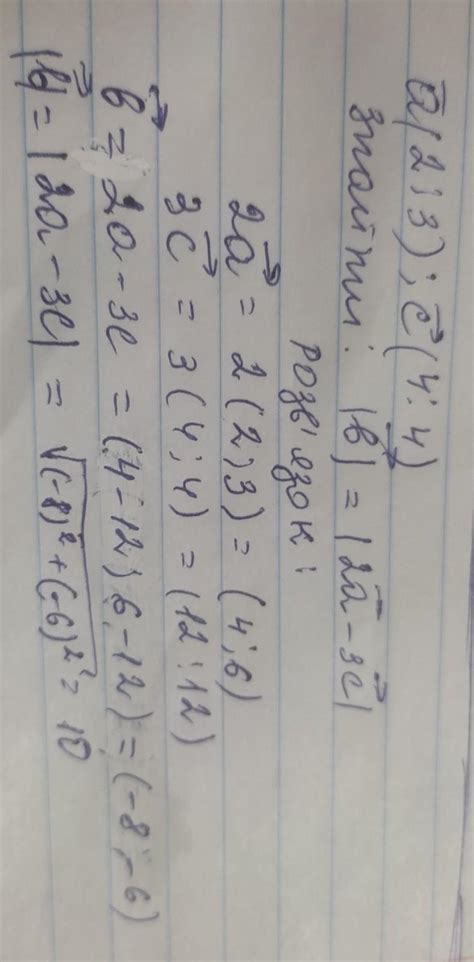 a⃗(2;3); c⃗(4;4)
Знайти: |b⃗| = |2a⃗-3c⃗|
Розв'язок:
2a⃗ = 2(2;3) = (4;6)
3c⃗ = 3(4;4) = (12;12)
b⃗ = 2a-3c = (4-12; 6-12) = (-8;-6)
|b⃗| = |2a-3c| = √(-8)²+(-6)² = 10